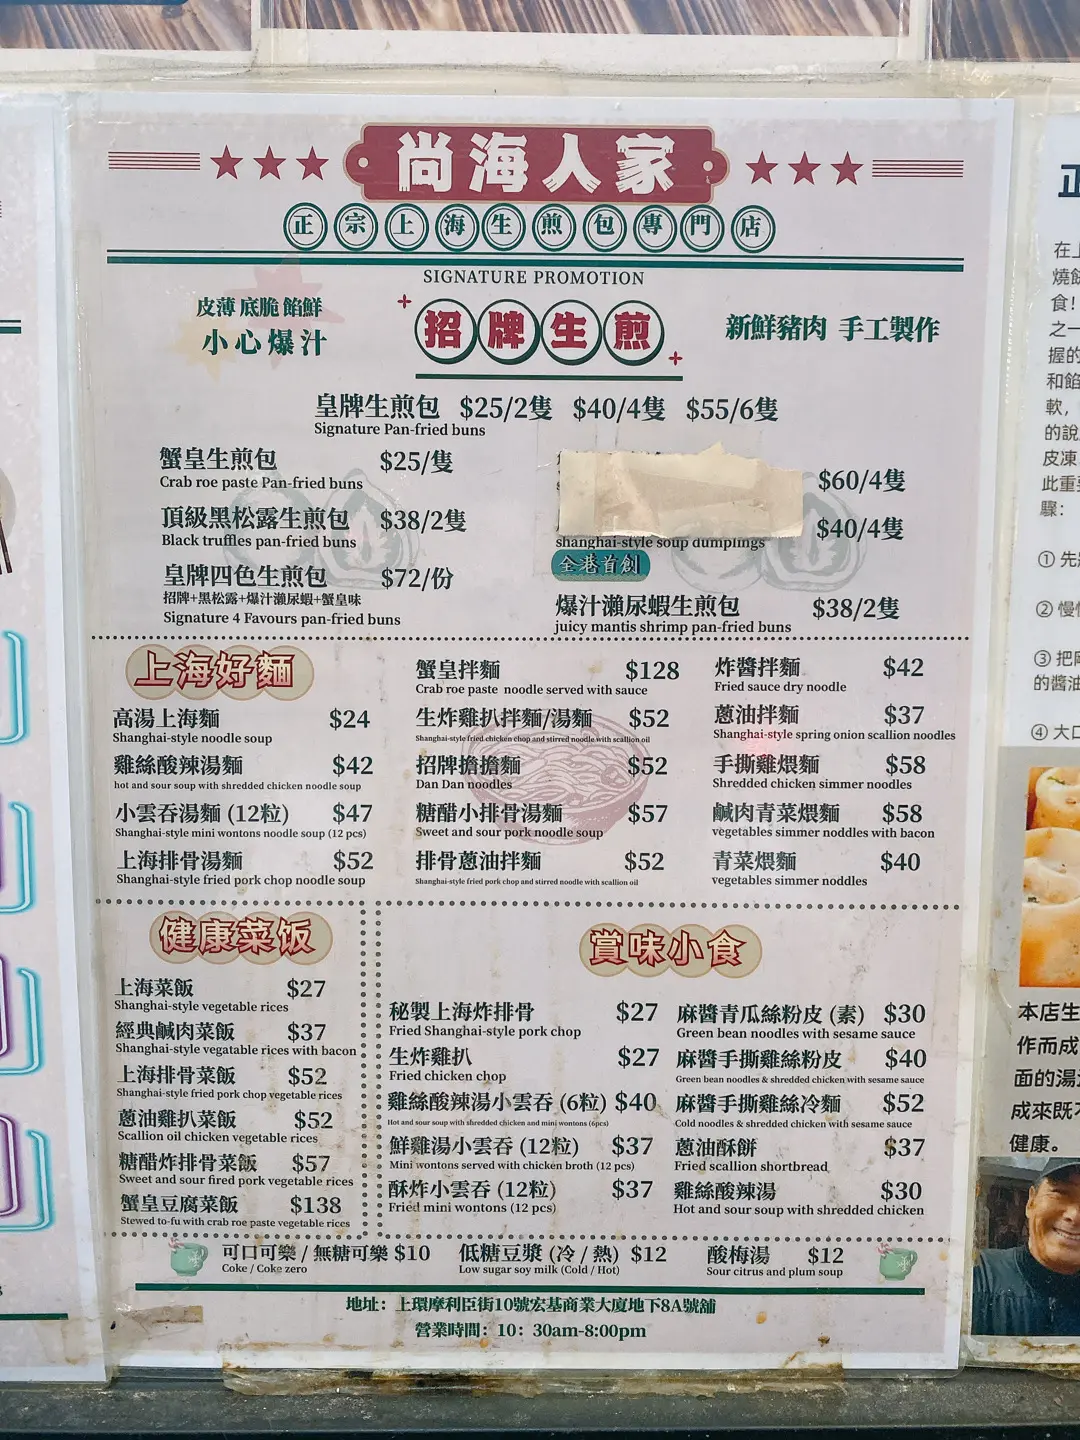 尚海人家
正宗上海生煎包專門店
SIGNATURE PROMOTION
皮薄 底脆 餡鮮
小心爆汁
招牌生煎
新鮮豬肉 手工製作
皇牌生煎包 $25/2隻 $40/4隻 $55/6隻
Signature Pan-fried buns
蟹皇生煎包 $25/隻
Crab roe paste Pan-fried buns
頂級黑松露生煎包 $38/2隻
Black truffles pan-fried buns
皇牌四色生煎包 $72/份
招牌+黑松露+爆汁瀨尿蝦+蟹皇味
Signature 4 Favours pan-fried buns
$60/4隻
$40/4隻
shanghai-style soup dumplings
全巷首創
爆汁瀨尿蝦生煎包 $38/2隻
juicy mantis shrimp pan-fried buns
上海好麵
高湯上海麵 $24
Shanghai-style noodle soup
雞絲酸辣湯麵 $42
hot and sour soup with shredded chicken noodle soup
小雲吞湯麵 (12粒) $47
Shanghai-style mini wontons noodle soup (12 pcs)
上海排骨湯麵 $52
Shanghai-style fried pork chop noodle soup
蟹皇拌麵 $128
Crab roe paste noodle served with sauce
生炸雞扒拌麵/湯麵 $52
Shanghai-style fried chicken chop and stirred noodle with scallion oil
招牌擔擔麵 $52
Dan Dan noodles
糖醋小排骨湯麵 $57
Sweet and sour pork noodle soup
排骨蔥油拌麵 $52
Shanghai-style fried pork chop and stirred noodle with scallion oil
炸醬拌麵 $42
Fried sauce dry noodle
蔥油拌麵 $37
Shanghai-style spring onion scallion noodles
手撕雞煨麵 $58
Shredded chicken simmer noodles
鹹肉青菜煨麵 $58
vegetables simmer noddles with bacon
青菜煨麵 $40
vegetables simmer noddles
健康菜饭
上海菜飯 $27
Shanghai-style vegetable rices
經典鹹肉菜飯 $37
Shanghai-style vegatable rices with bacon
上海排骨菜飯 $52
Shanghai-style fried pork chop vegetable rices
蔥油雞扒菜飯 $52
Scallion oil chicken vegetable rices
糖醋炸排骨菜飯 $57
Sweet and sour fired pork vegetable rices
蟹皇豆腐菜飯 $138
Stewed to-fu with crab roe paste vegetable rices
賞味小食
秘製上海炸排骨 $27
Fried Shanghai-style pork chop
生炸雞扒 $27
Fried chicken chop
雞絲酸辣湯小雲吞 (6粒) $40
Hot and sour soup with shredded chicken and mini wontons (6pcs)
鮮雞湯小雲吞 (12粒) $37
Mini wontons served with chicken broth (12 pcs)
酥炸小雲吞 (12粒) $37
Fried mini wontons (12 pcs)
麻醬青瓜絲粉皮 (素) $30
Green bean noodles with sesame sauce
麻醬手撕雞絲粉皮 $40
Green bean noodles & shredded chicken with sesame sauce
麻醬手撕雞絲冷麵 $52
Cold noodles & shredded chicken with sesame sauce
蔥油酥餅 $37
Fried scallion shortbread
雞絲酸辣湯 $30
Hot and sour soup with shredded chicken
可口可樂 / 無糖可樂 $10
Coke / Coke zero
低糖豆漿 (冷 / 熱) $12
Low sugar soy milk (Cold / Hot)
酸梅湯 $12
Sour citrus and plum soup
地址：上環摩利臣街10號宏基商業大廈地下8A號舖
營業時間：10：30am-8:00pm
正
在上
燒餅
食！
之一
握的
和餡
軟，
的說
皮凍
此重要
驟：
① 先
② 慢
③ 把
的醬油
④ 大口
本店生
作而成
面的湯
成來既不
健康。